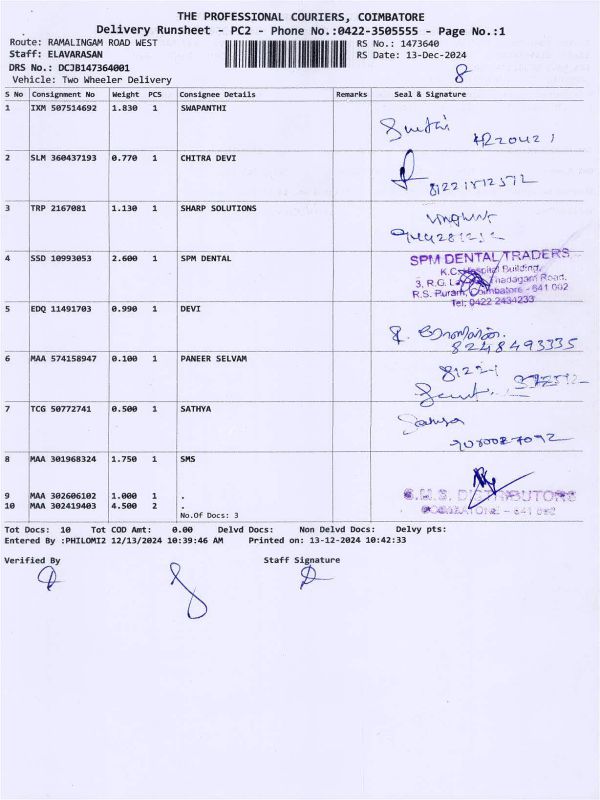 THE PROFESSIONAL COURIERS, COIMBATORE
Delivery Runsheet - PC2 - Phone No.:0422-3505555 - Page No.:1
Route: RAMALINGAM ROAD WEST RS No.: 1473640
Staff: ELAVARASAN RS Date: 13-Dec-2024
DRS No.: DCJB147364001
8
Vehicle: Two Wheeler Delivery
S No Consignment No Weight PCS Consignee Details Remarks Seal & Signature
1 IXM 507514692 1.830 1 SWAPANTHI
2 SLM 360437193 0.770 1 CHITRA DEVI
3 TRP 2167081 1.130 1 SHARP SOLUTIONS
4 SSD 10993053 2.600 1 SPM DENTAL
SPM DENTAL TRADERS
K.C. Hospital Building,
3, R.G. Thadagam Road,
R.S. Puram, Coimbatore - 641 002
Tel: 0422 2434233
5 EDQ 11491703 0.990 1 DEVI
8248493335
6 MAA 574158947 0.100 1 PANEER SELVAM
7 TCG 50772741 0.500 1 SATHYA
Sathya
8 MAA 301968324 1.750 1 SMS
9 MAA 302606102 1.000 1 .
S.M.S. DISTRIBUTORS
10 MAA 302419403 4.500 2 .
COIMBATORE - 641 002
No.Of Docs: 3
Tot Docs: 10 Tot COD Amt: 0.00 Delvd Docs: Non Delvd Docs: Delvy pts:
Entered By :PHILOMI2 12/13/2024 10:39:46 AM Printed on: 13-12-2024 10:42:33
Verified By Staff Signature